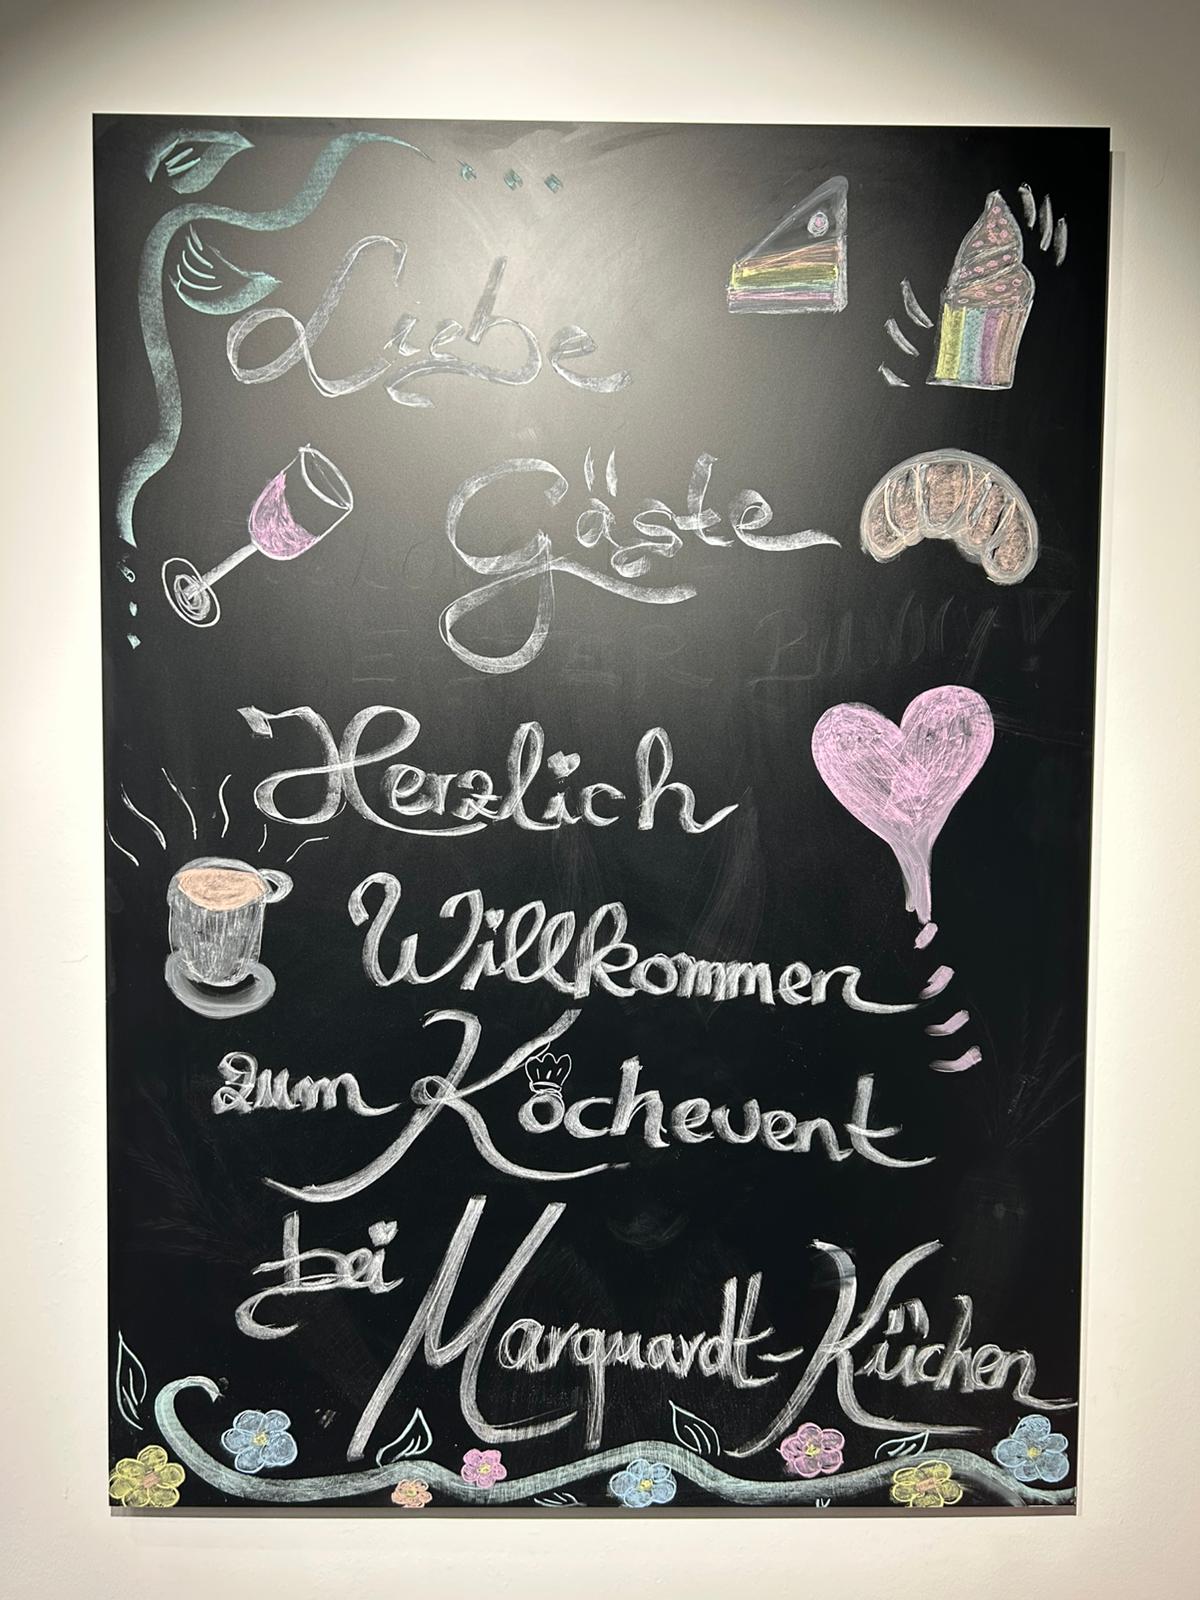 Liebe
Gäste
Herzlich
Willkommen
zum Kochevent
bei Marquardt-Küchen